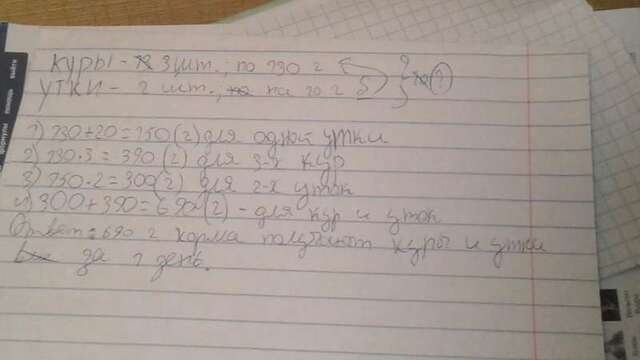 куры - 3 шт., по 130 г
утки - 2 шт., на 20 г б } ?
1) 130+20=150 (г) для одной утки
2) 130·3=390 (г) для 3-х кур
3) 150·2=300 (г) для 2-х уток
4) 300+390=690 (г) - для кур и уток
Ответ: 690 г корма получают куры и утки
за 1 день.